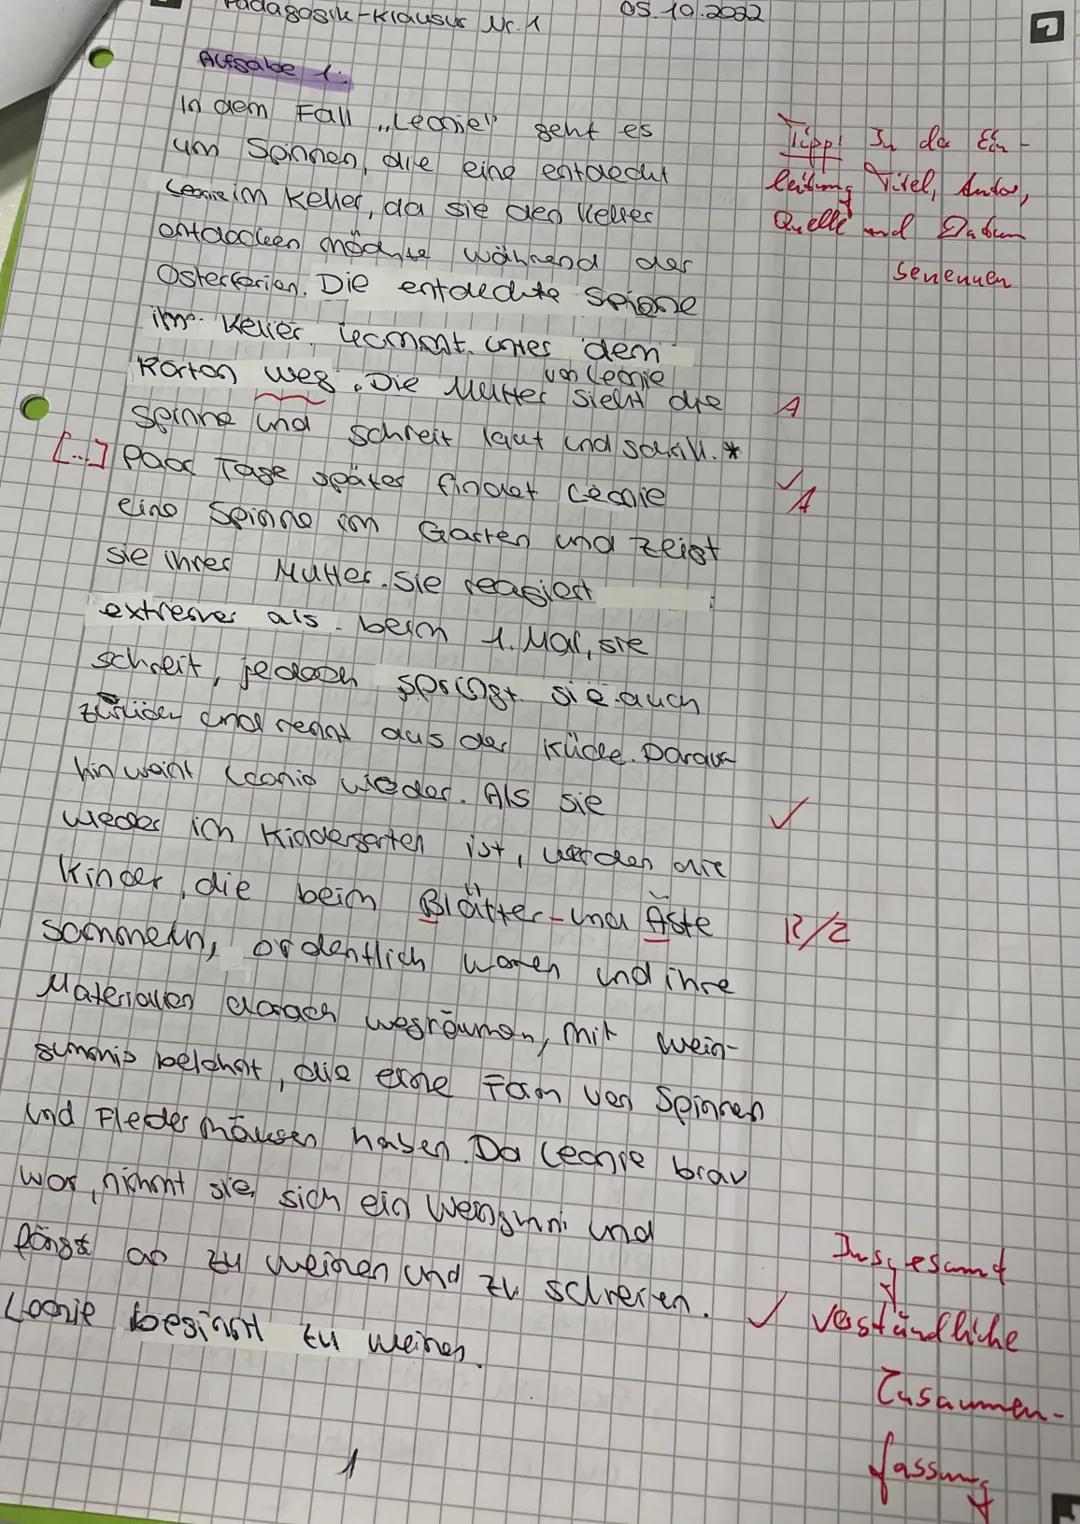 Pädagogik-Klausur Nr. 1 05.10.2022
Aufgabe 1.
In dem Fall „Leonie" geht es
um Spinnen, die eine entdeckt
Leonie im Keller, da sie den Keller
entdecken möchte während der
Osterferien. Die entdeckte Spinne
im Keller kommt unter dem
Karton weg. Die Mutter von Leonie sieht die
Spinne und schreit laut und schrill. *
[...] Paar Tage später findet Leonie
eine Spinne im Garten und zeigt
sie ihrer Mutter. Sie reagiert
extremer als beim 1. Mal, sie
schreit, jedoch springt sie auch
zurück und rennt aus der Küche. Darauf
hin weint Leonie wieder. Als sie
wieder im Kindergarten ist, werden die
Kinder, die beim Blätter- und Äste
sammeln, ordentlich waren und ihre
Materialien danach wegräumen, mit Wein-
gummis belohnt, die eine Form von Spinnen
und Fledermäusen haben. Da Leonie brav
war, nimmt sie sich ein Weingummi und
fängt an zu weinen und zu schreien.
Leonie beginnt zu weinen.
1
Tipp! In der Ein-
leitung Titel, Autor,
Quelle und Datum
benennen
A
✓
A
✓
R/Z
✓ Insgesamt
verständliche
Zusammen-
fassung